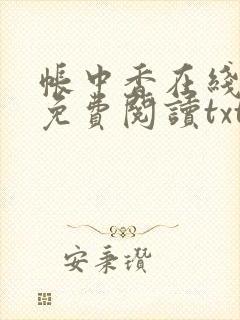 帳中香在綫
免費閱讀txt
安秉瓚